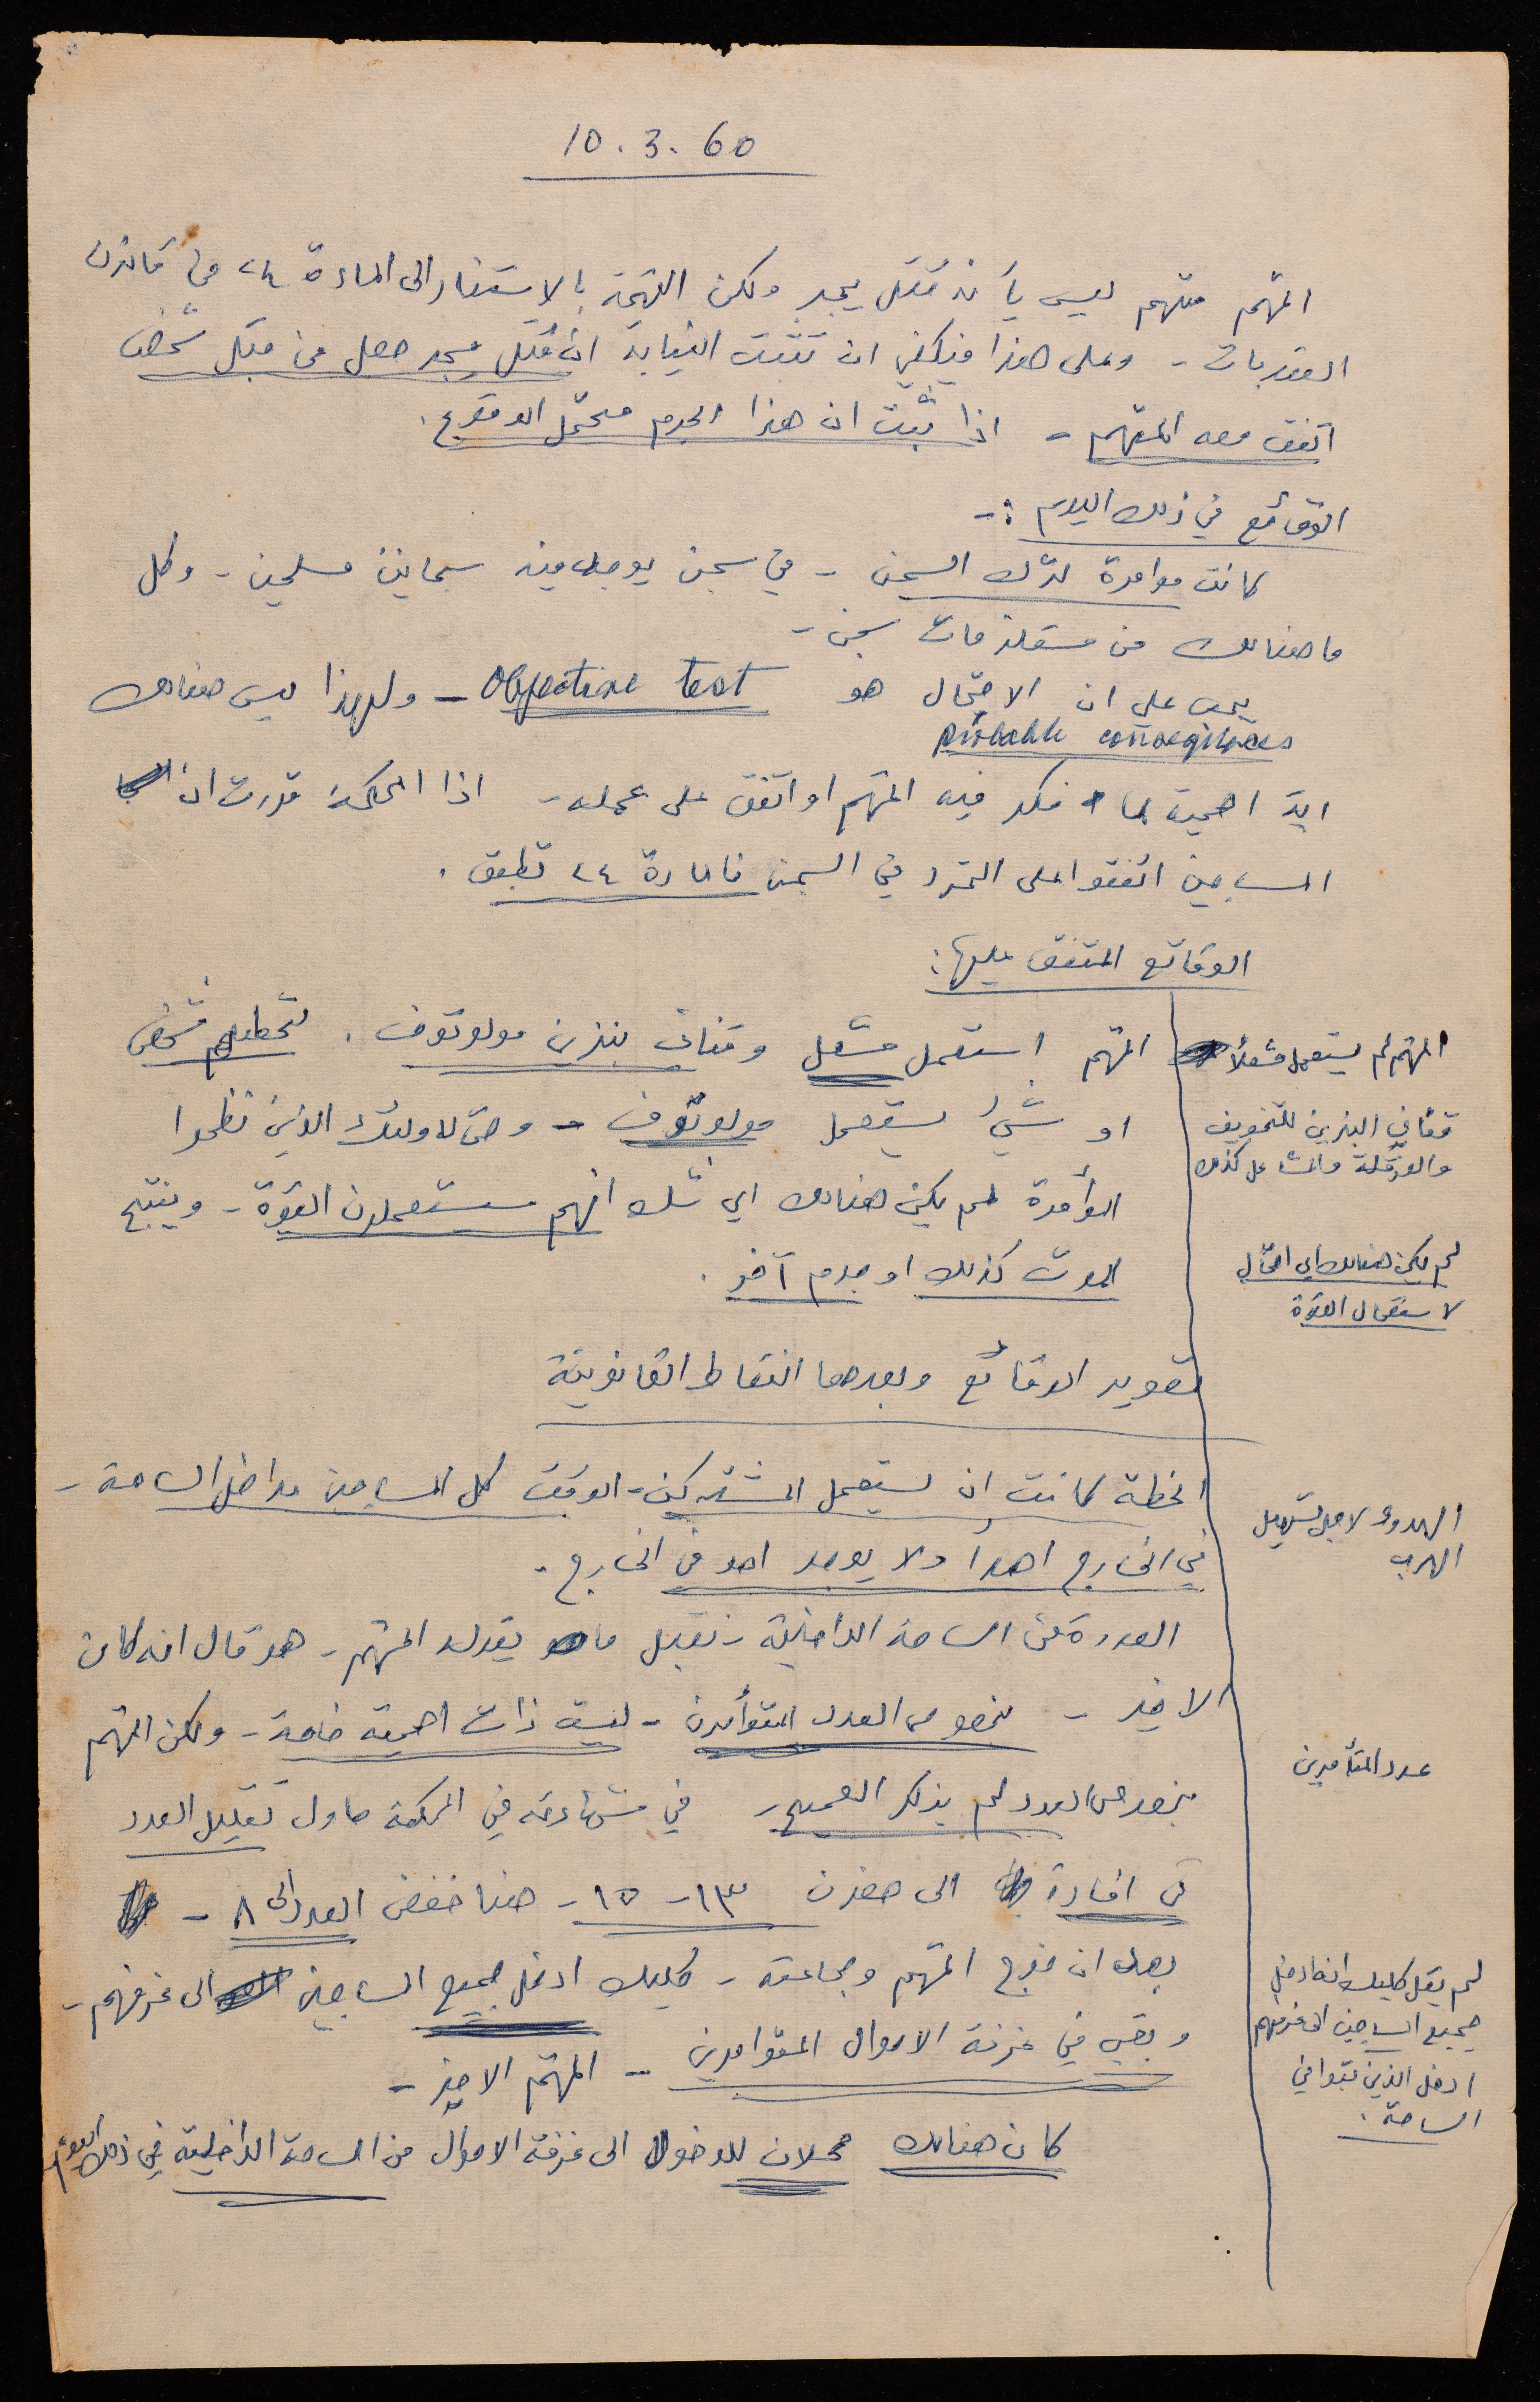 10.3.60
المتهم متهم ليس بأنه قتل يجر ولكن التهمة بالاستناد الى المادة ٢٤ من قانون
العقوبات - وعلى هذا فيكفي ان تثبت النيابة ان قتل يجر حصل من قبل شخص
اتفق معه المتهم - اذا ثبت ان هذا الجرم محتمل الوقوع.
الوقائع في ذلك اليوم :-
كانت موامرة لترك السجن - في سجن يوجد فيه سجانين مسلحين - وكل
ما هنالك من مستلزمات سجن -
على ان الاحتمال هو Objective test - ولهذا ليس هنالك
probable consequences
اية اهمية لما فكر فيه المتهم او اتفق على عمله - اذا المحكمة قررت ان
المساجين اتفقوا على التمرد في السجن فالمادة ٢٤ تطبق.
الوقائع المتفق عليها:
المتهم استعمل مشعل وقناني بنزين مولوتوف. لتحطيم شخص
او شيءٍ يستعمل مولوتوف - وحتى لاولئك الذين نظموا
الموأمرة لم يكن هنالك اي شك انهم سيستعملون القوة - وينتج
الموت كذلك او جرم آخر.
تقرير الوقائع وبعدها النقاط القانونية
الخطة كانت ان يستعمل المشتركين - الوقت كل المساجين داخل الساحة -
في الخارج احداً ولا يوجد احد في الخارج.
العودة من الساحة الداخلية - نقبل ما يقوله المتهم - هو قال انه كان
الاخير - بخصوص العدد المتوأمرين - ليست ذات اهمية خاصة - ولكن المتهم
بخصوص العدد لم يذكر الصحيح - في شهادته في المحكمة حاول تقليل العدد
في افادة الى حفزن ١٣ - ١٥ - هنا خفض العدد الى ٨ -
بعد ان خرج المتهم وجماعته - كليك ادخل جميع المساجين الى غرفهم -
وبقي في غرفة الاموال المتوامرين - المتهم الاخير -
كان هنالك محلان للدخول الى غرفة الاموال من الساحة الداخلية في ذلك اليوم
المتهم لم يستعمل مشعلاً
قناني البنزين للتخويف
والعرقلة والمشاعل كذلك
لم يكن هنالك اي احتمال
لاستعمال القوة
الهدوء لاجل تسهيل
الهرب
عدد المتأمرين
لم يقل كليك انه ادخل
جميع المساجين الى غرفهم
ادخل الذين تبقوا في
الساحة.